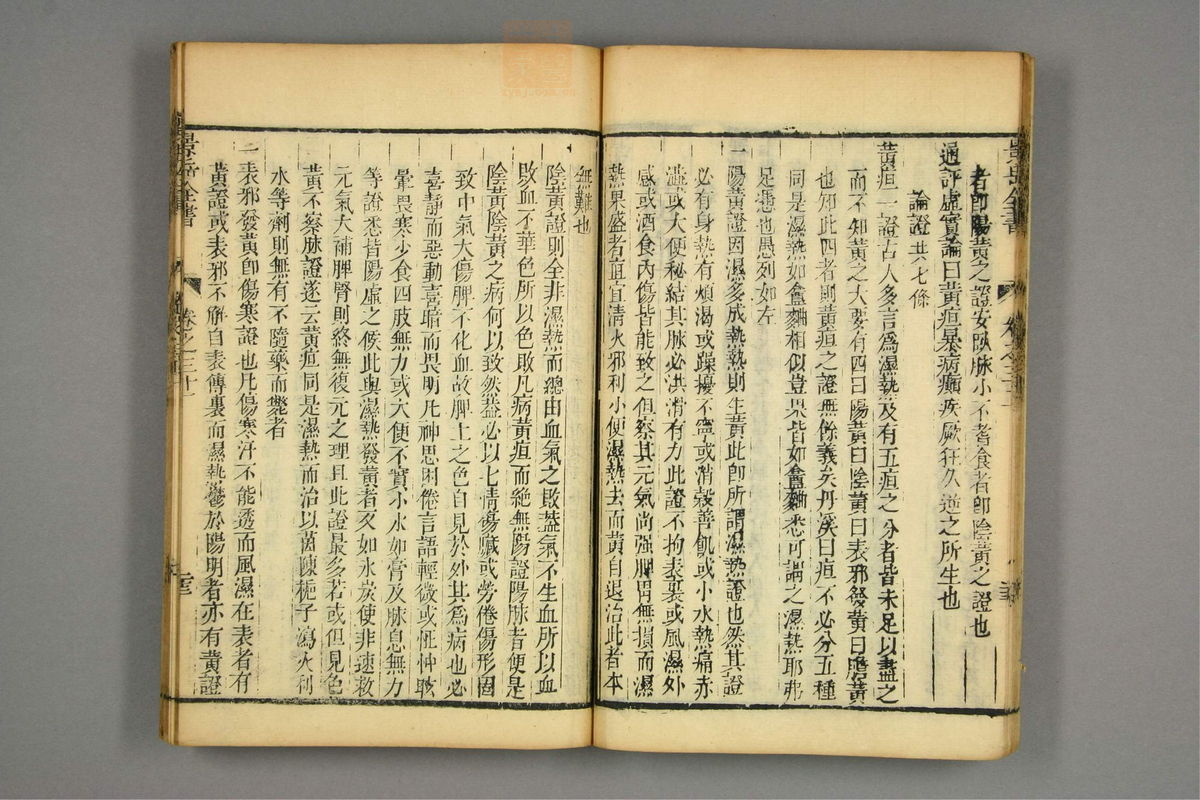 者即陽黃之證安臥脉小不嗜食者即陰黃之證也
通評虛實論曰黃疸暴病癲疾厥狂久逆之所生也
論證 共七條
黃疸一證古人多言爲濕熱及有五疸之分者皆未足以盡之
而不知黃之大要有四曰陽黃曰陰黃曰表邪發黃曰膽黃
也知此四者則黃疸之證無餘義矣丹溪曰疸不必分五種
同是濕熱如盦麯相似豈果皆如盦麯悉可謂之濕熱耶弗
足憑也愚列如左
一陽黃證因濕多成熱熱則生黃此即所謂濕熱證也然其證
必有身熱有煩渴或躁擾不寧或消穀善飢或小水熱痛赤
澁或大便秘結其脉必洪滑有力此證不拘表裏或風濕外
感或酒食內傷皆能致之但察其元氣尚强脾胃無損而濕
熱果盛者直宜清火邪利小便濕熱去而黃自退治此者本
無難也
陰黃證則全非濕熱而總由血氣之敗葢氣不生血所以血
敗血不華色所以色敗凡病黃疸而絶無陽證陽脉者便是
陰黃陰黃之病何以致然葢必以七情傷臟或勞倦傷形因
致中氣大傷脾不化血故脾土之色自見於外其爲病也必
喜靜而惡動喜暗而畏明凡神思困倦言語輕微或怔忡眩
暈畏寒少食四肢無力或大便不實小水如膏及脉息無力
等證悉皆陽虛之候此與濕熱發黃者反如氷炭使非速救
元氣大補脾腎則終無復元之理且此證最多若或但見色
黃不察脉證遂云黃疸同是濕熱而治以茵陳梔子瀉火利
水等劑則無有不隨藥而斃者
一表邪發黃即傷寒證也凡傷寒汗不能透而風濕在表者有
黃證或表邪不解自表傳裏而濕熱鬱於陽明者亦有黃證
景岳全書
卷之三十一